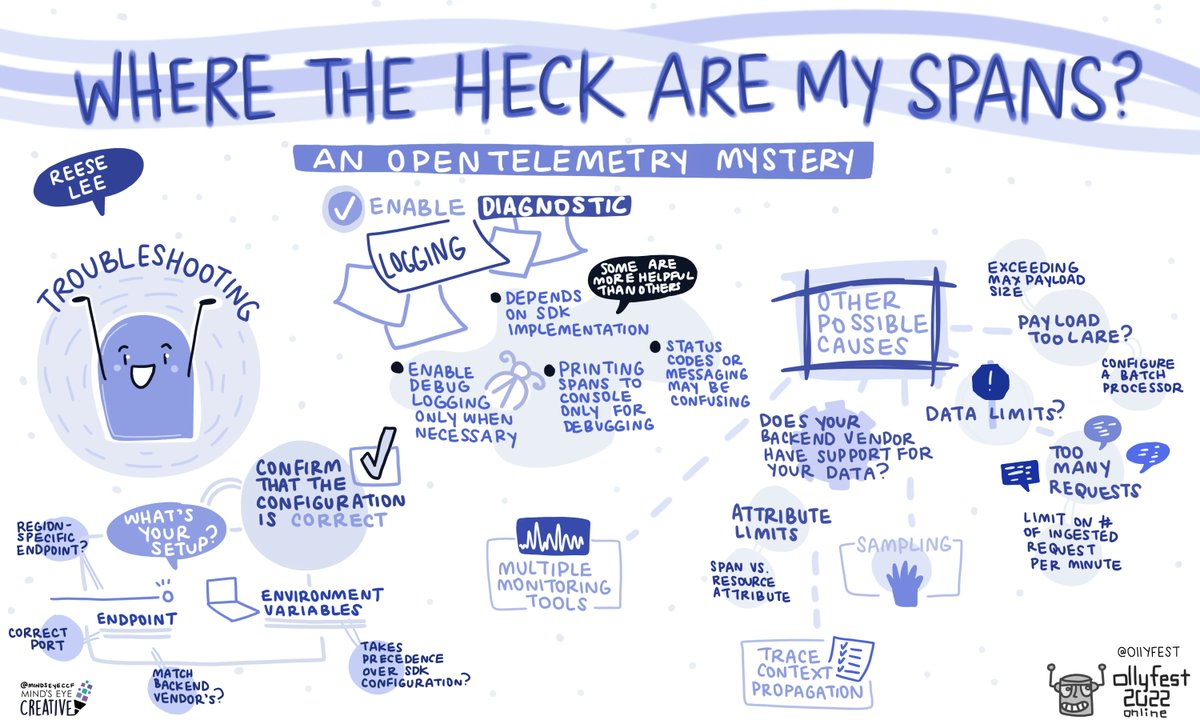 WHERE THE HECK ARE MY SPANS?
AN OPENTELEMETRY MYSTERY
REESE
LEE
TROUBLESHOOTING
ENABLE DIAGNOSTIC
LOGGING
SOME ARE
MORE HELPFUL
THAN OTHERS
DEPENDS
ON SDK
IMPLEMENTATION
ENABLE
DEBUG
LOGGING
ONLY WHEN
NECESSARY
PRINTING
SPANS TO
CONSOLE
ONLY FOR
DEBUGGING
STATUS
CODES OR
MESSAGING
MAY BE
CONFUSING
CONFIRM
THAT THE
CONFIGURATION
IS CORRECT
WHAT'S
YOUR
SETUP?
REGION-
SPECIFIC
ENDPOINT?
ENDPOINT
CORRECT
PORT
MATCH
BACKEND
VENDOR'S?
ENVIRONMENT
VARIABLES
TAKES
PRECEDENCE
OVER SDK
CONFIGURATION?
OTHER
POSSIBLE
CAUSES
EXCEEDING
MAX PAYLOAD
SIZE
PAYLOAD
TOO LARE?
CONFIGURE
A BATCH
PROCESSOR
!
DATA LIMITS?
TOO
MANY
REQUESTS
LIMIT ON #
OF INGESTED
REQUEST
PER MINUTE
DOES YOUR
BACKEND VENDOR
HAVE SUPPORT FOR
YOUR DATA?
ATTRIBUTE
LIMITS
SPAN VS.
RESOURCE
ATTRIBUTE
SAMPLING
MULTIPLE
MONITORING
TOOLS
TRACE
CONTEXT
PROPAGATION
@MINDSEYECCF
MIND'S EYE
CREATIVE
@OllYFEST
ollyfest
2022
online